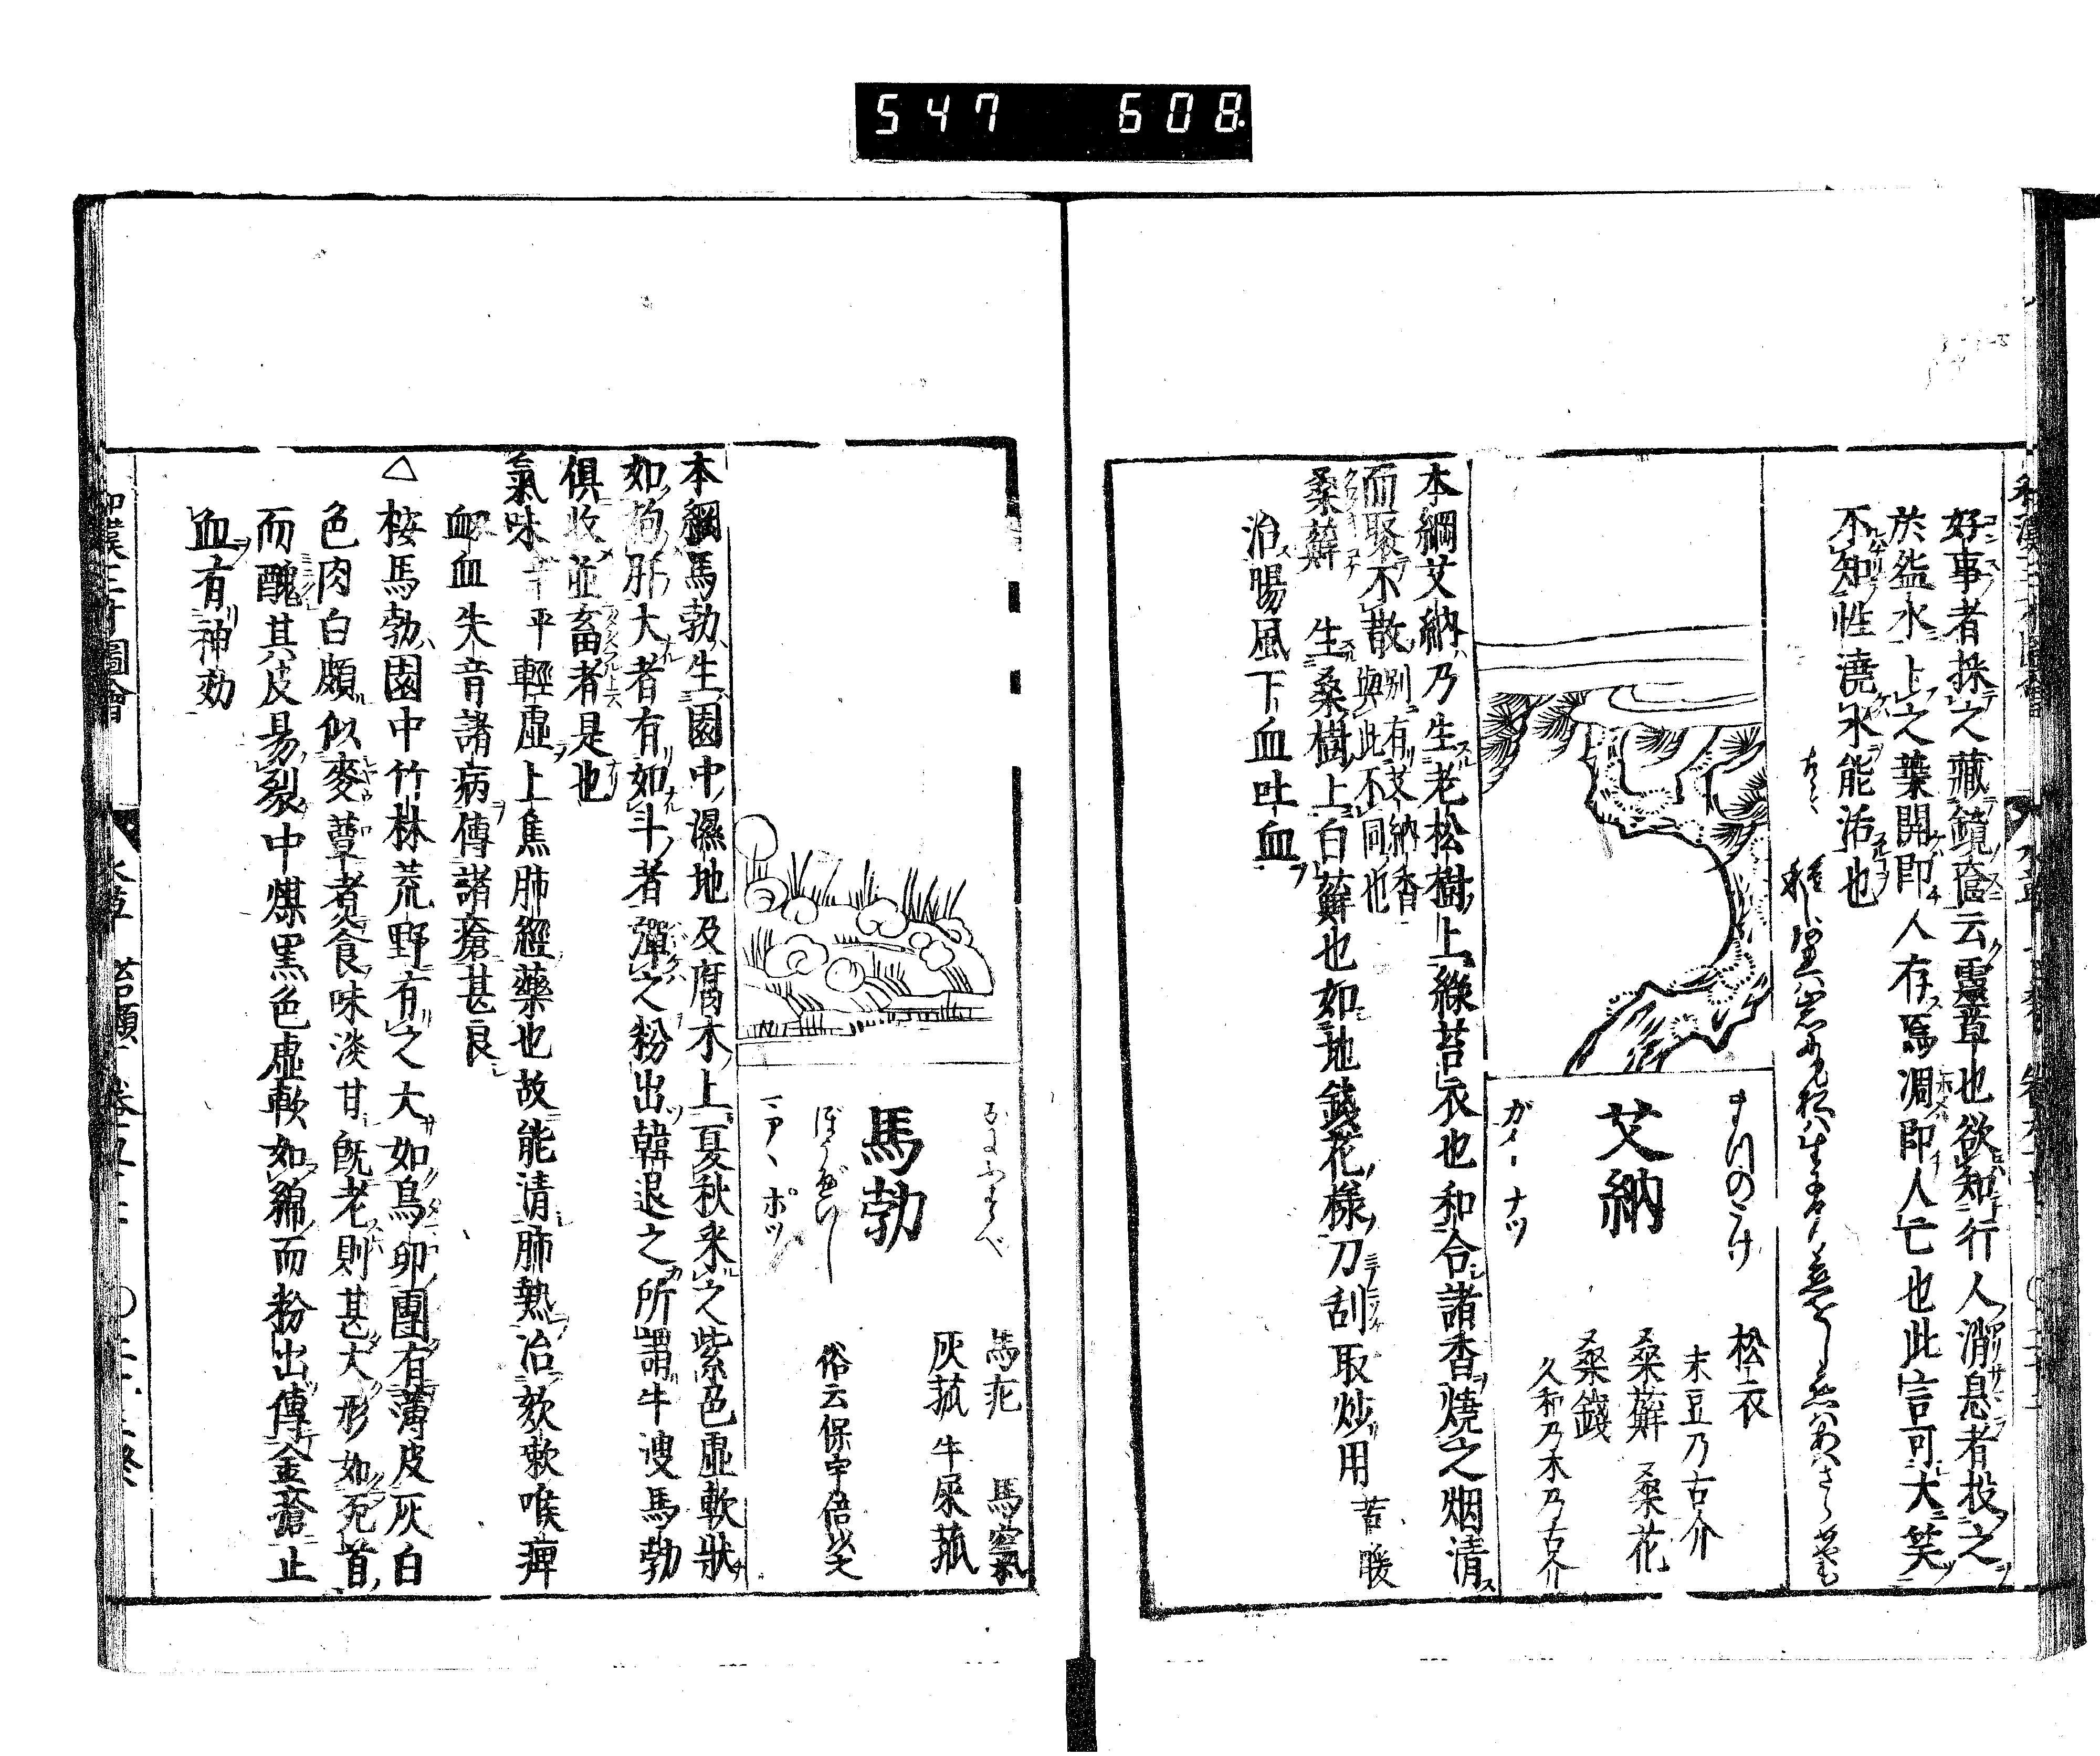 547 608
好事者採之藏鏡奩云靈草也欲知行人消息者投之
於盆水上之葉開即人存焉凋即人亡也此言可大笑
不知性澆水能活也
まつのこけ
艾納
ガイ ナツ
松衣
末豆乃古介
桑蘚 桑花
桑錢
久和乃木乃古介
本綱艾納乃生老松樹上綠苔衣也和合諸香燒之烟清
而聚不散別有艾納香與此不同也
桑蘚 生桑樹上白蘚也如地錢花樣刀刮取炒用苦暖
治腸風下血吐血
馬勃
ぼうべいし
マアヽ ポツ
馬疕 馬窩氣
灰菰 牛屎菰
俗云保宇倍以之
本綱馬勃生園中濕地及腐木上夏秋采之紫色虛軟狀
如狗肝大者有如斗者彈之粉出韓退之所謂牛溲馬勃
俱收並畜者是也
氣味辛平輕虛上焦肺經藥也故能清肺熱治欬嗽喉痺
衄血失音諸病傅諸瘡甚良
△按馬勃園中竹林荒野有之大如鳥卵團有薄皮灰白
色肉白頗似麥蕈煮食味淡甘既老則甚大形如死首
而醜其皮易裂中煤黑色虛軟如綿而粉出傅金瘡止
血有神効